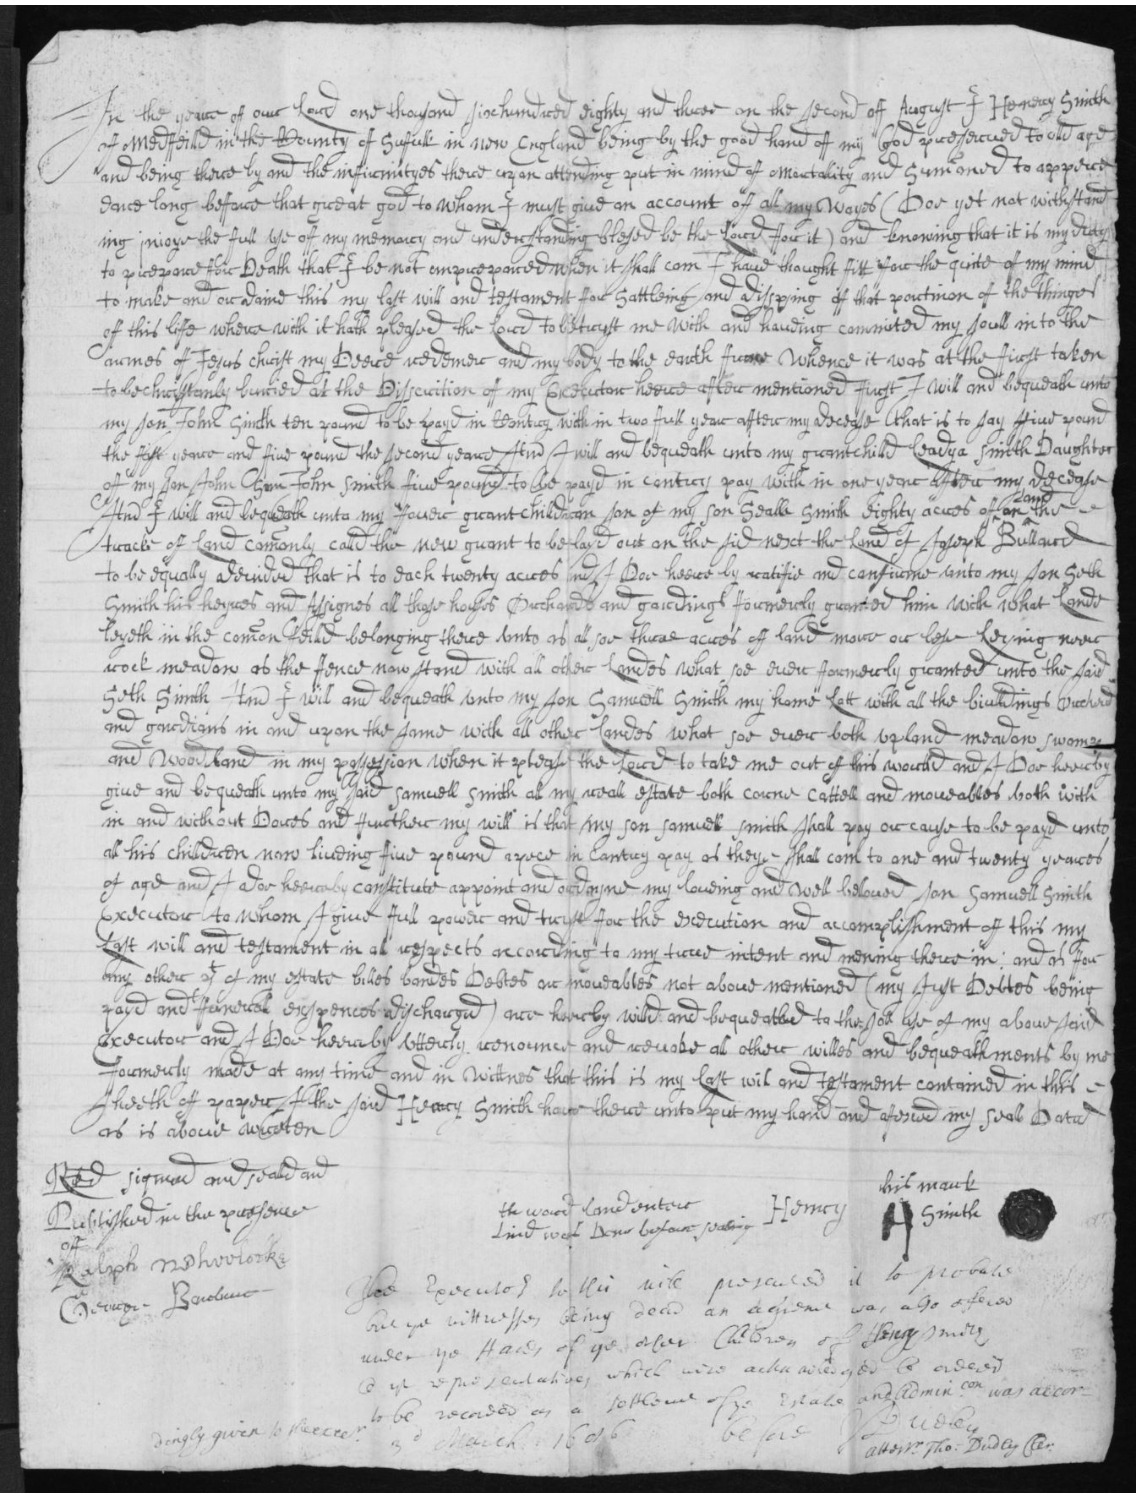 In the yeare off our Lord one thousand sixhundred eighty and three on the second off August I Henery Smith
of Medffeilld in the County of Suffulk in new England being by the good hand off my God presserved to old age
and being there by and the infirmityes there upon attending put in mind of Mortality and Sumoned to appeere
eare long beffore that great god to whom I must give an account off all my Wayes (Doe yet not withstand
ing injoye the full use off my memory and understanding blesed be the Lord ffor it) and knowing that it is my duty
to prepare ffor Death that I be not unprepared when it shall com I have thought fitt ffor the quite of my mind
to make and ordaine this my last will and testament ffor Sattleing and disspsing of that portinon of the things
off this liffe where with it hath pleased the Lord to betrust me with and having commited my soull into the
armes of Jesus Christ my Deere redemer and my body to the earth from Whence it was at the first taken
to be christianly buried at the Disscrition of my Executor heere after mentioned ffurst I will and bequeath unto
my son John Smith ten pound to be payd in contry with in two full year after my decease that is to say ffive pound
the first yeare and five pound the second yeare And I will and bequeath unto my grantchilld Leadya Smith Daughter
off my son John Smith five pound to be payd in contry pay with in one year after my decease
And I will and bequeath unto my ffouer grantchilldren son of my son Seath Smith eighty acres off land on the
tract of Land comonly calld the new grant to be layd out on the sid next the Land of Joseph Bullard
to be equally devided that is to each twenty acres and I Doe heere by ratifie and confirme unto my son Seth
Smith his heyres and Assignes all those houses Orchards and gardings fformerly granted him with what Lande
leyeth in the comon ffeild belonging there unto as all soe three acres off land more or less leying neer
rock meadow as the ffence now stand with all other Landes what soe ever fformerly granted unto the said
Seth Smith And I will and bequeath unto my son Samuell Smith my home Lott with all the buildings Orchard
and gardians in and upon the same with all other Landes what soe ever both upland meadow swomp
and Woodland in my possession when it please the Lord to take me out of this world and I Doe heerby
give and bequeath unto my said Samuell Smith all my reall estate both corne cattell and moveables both with
in and without Dores and ffurther my will is that my son Samuell Smith shall pay or cause to be payd unto
all his chilldren now liveing five pound apece in contry pay as theye shall com to one and twenty yeares
of age and I doe heereby constitute appoint and ordayne my loveing and well beloved son Samuell Smith
Executor to whom I give full power and trust ffor the execution and accomplishment off this my
Last will and testament in all respects according to my true intent and mening there in: and as ffor
any other of my estate billes bondes Debtes or moveables not above mentioned (my just Debtes being
payd and ffunerall expences dischargd) are heerby willd and bequeathed to the sole use of my above said
Executor and I Doe heereby utterly renounce and revoke all other willes and bequeathments by me
fformerly made at any time and in wittnes that this is my last will and testament contained in this
sheeth off paper I the said Henry Smith have there unto put my hand and afixed my seall Dated
as is above writen
Red signed and sealed and
Publlished in the pressence
off
Ralph Wheelocke
George Barbur
the word land enter
lined was Done before sealing
his mark
Henry H Smith
The Executor to this will presented it to probate
but ye wittnesses being dead an agreemt was also offered
under ye Hands of ye other Children of Henry Smith
& ye representatives which were acknowledged & ordered
to be recorded as a settlemt of ye Estate and Admin con was accor-
dingly given to
3d March 1686 before J Dudley
attestr. Tho: Dudley Cler.